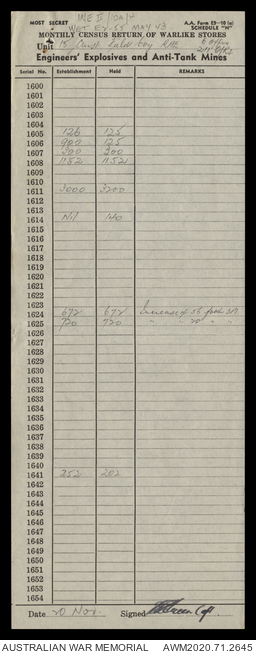 MOST SECRET
WE II/10A/4
A.A. Form E9-10 (a)
SCHEDULE "H"
MONTHLY CENSUS RETURN OF WARLIKE STORES
Unit 15
Engineers' Explosives and Anti-Tank Mines
Serial No. Establishment Held REMARKS
1600
1601
1602
1603
1604
1605 126 125
1606 900 125
1607 300 300
1608 1152 1152
1609
1610
1611 3000 3200
1612
1613
1614 Nil 140
1615
1616
1617
1618
1619
1620
1621
1622
1623
1624 672 672 Increase of 56
1625 720 720 " " 20 " "
1626
1627
1628
1629
1630
1631
1632
1633
1634
1635
1636
1637
1638
1639
1640
1641 252 202
1642
1643
1644
1645
1646
1647
1648
1649
1650
1651
1652
1653
1654
Date 20 Nov. Signed Green Capt
AUSTRALIAN WAR MEMORIAL AWM2020.71.2645